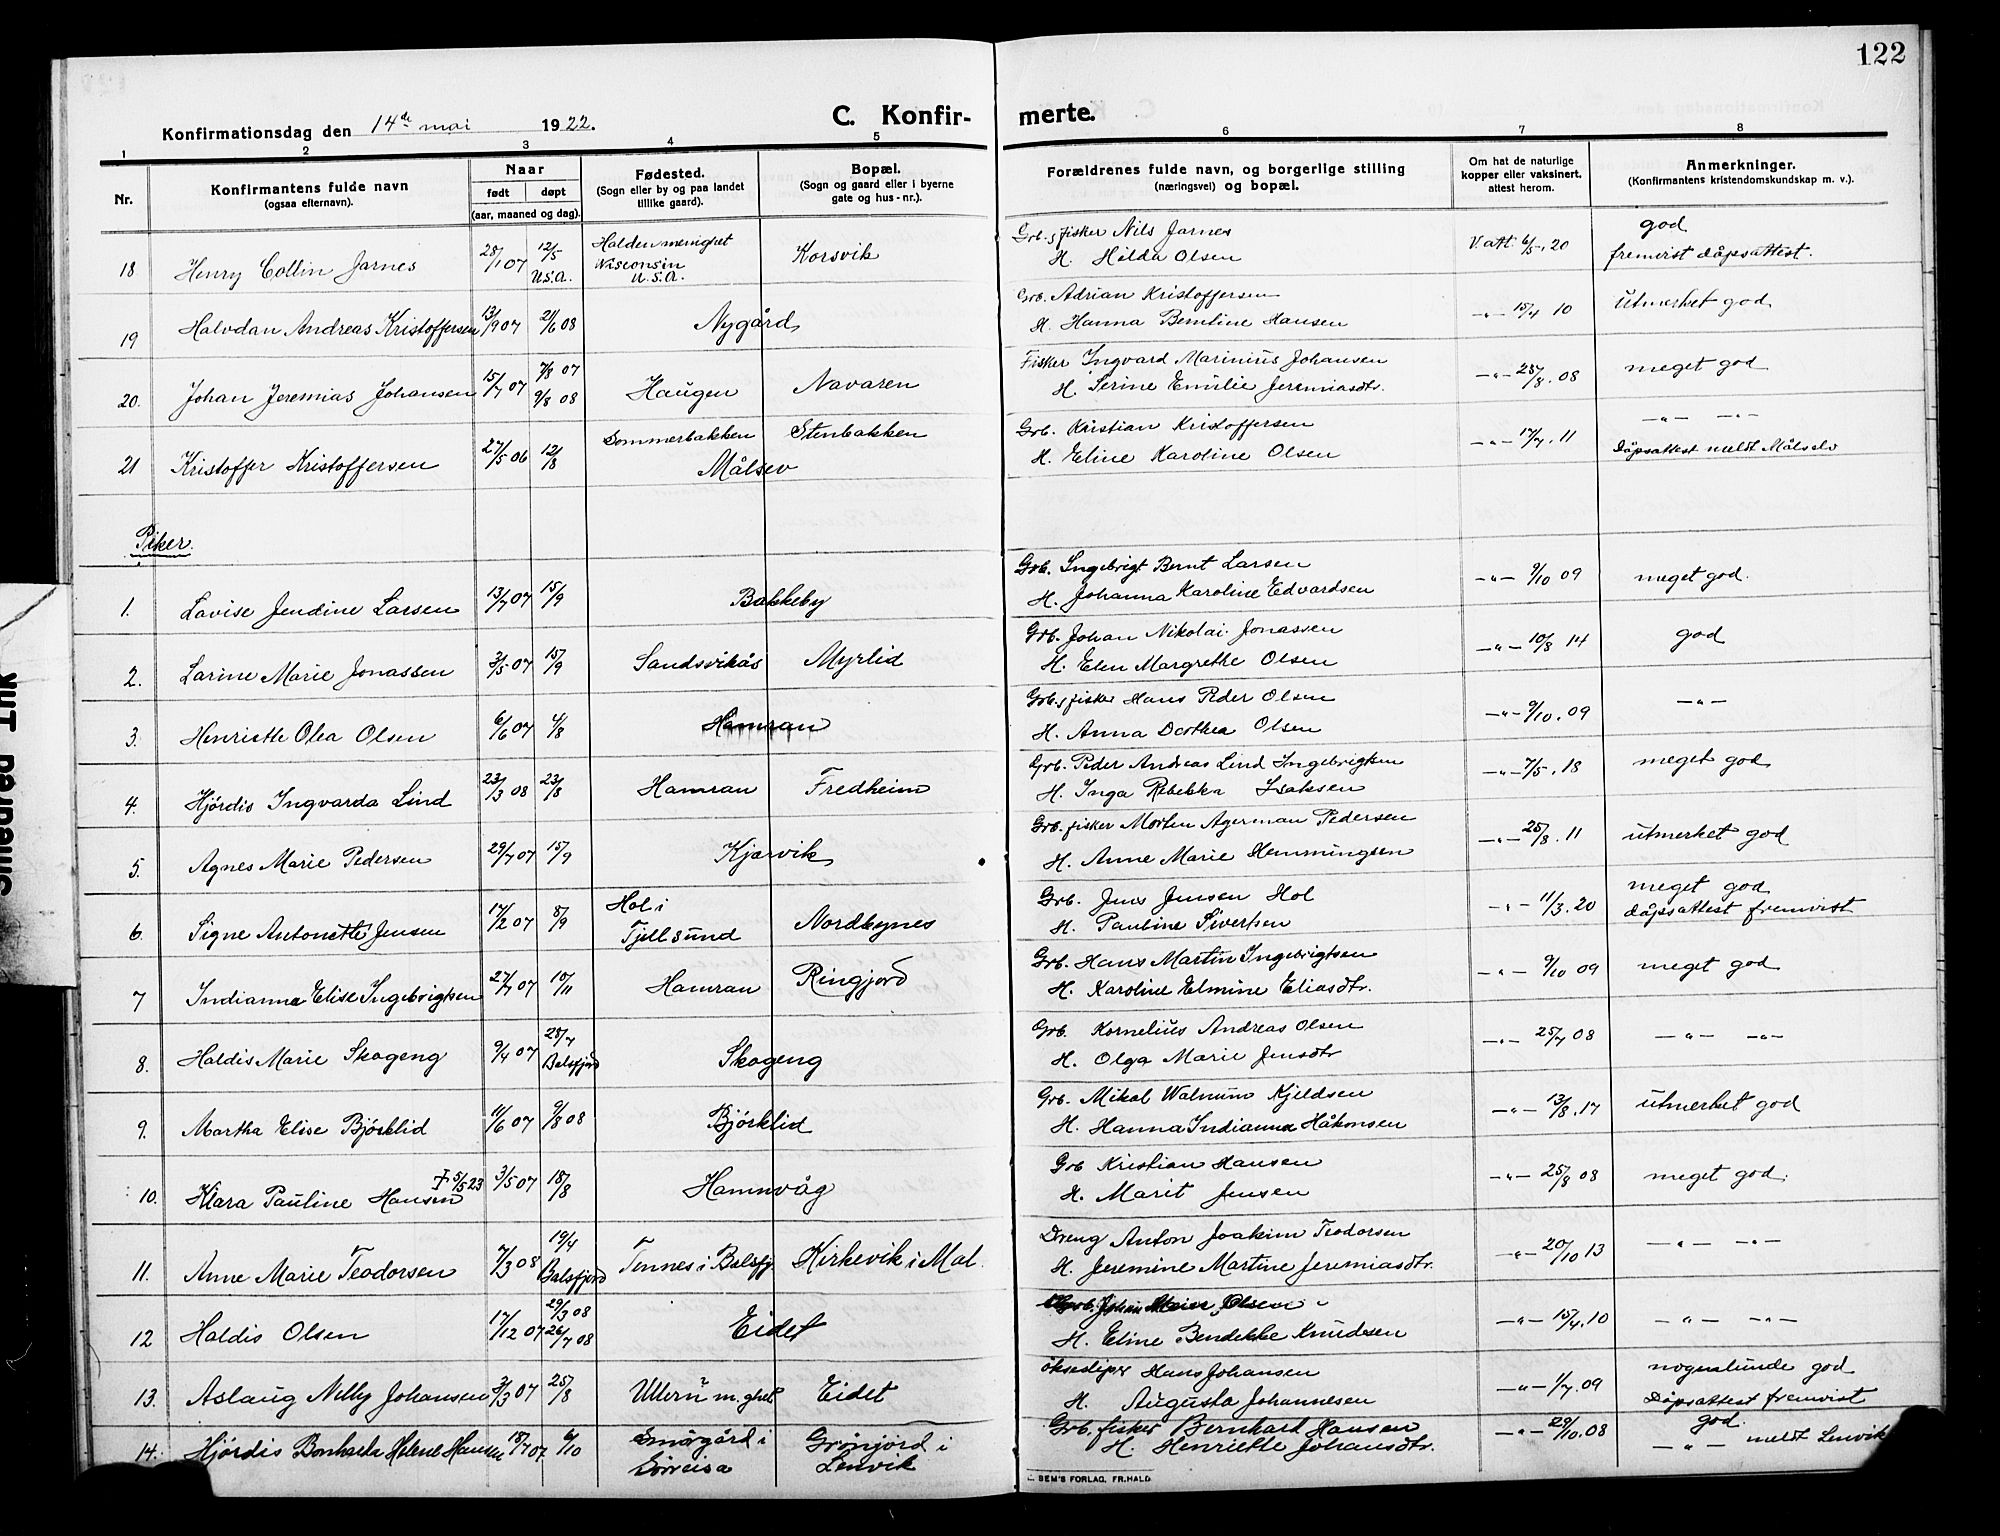 122
Konfirmationsdag den 14de mai 1922.
C. Konfir-
merte.
1 2 3 4 5 6 7 8
Nr.
Konfirmantens fulde navn
(ogsaa efternavn).
Naar
født døpt
(aar, maaned og dag).
Fødested.
(Sogn eller by og paa landet
tillike gaard).
Bopæl.
(Sogn og gaard eller i byerne
gate og hus-nr.).
Forældrenes fulde navn, og borgerlige stilling
(næringsvei) og bopæl.
Om hat de naturlige
kopper eller vaksinert,
attest herom.
Anmerkninger.
(Konfirmantens kristendomskundskap m. v.).
18 Henry Collin Jarnes 28/1 07 12/5 U.S.A. Halden menighet Wisconsin U.S.A. Korsvik Grb. fisker Nils Jarnes
H. Hilda Olsen V. att. 6/5, 20 god fremvist dåpsattest.
19 Halvdan Andreas Kristoffersen 13/9 07 21/6 08 Nygård Grb. Adrian Kristoffersen
H. Hanna Berntine Hansen -"- 15/4 10 utmerket god
20. Johan Jeremias Johansen 15/7 07 7/8 07 9/8 08 Haugen Navaren Fisker Ingvard Marinius Johansen
H. Serine Emilie Jeremiasdtr. -"- 25/8. 08 meget god
21 Kristoffer Kristoffersen 27/5 06 12/8 Sommerbakken Stenbakken Målsev Grb. Kristian Kristoffersen
H. Eline Karoline Olsen -"- 17/7. 11 -"- -"- Dåpsattest meldt Målselv
Piker.
1. Lovise Jendine Larsen 13/7 07 15/9 Bakkeby Grb. Ingebrigt Bernt Larsen
H. Johanna Karoline Edvardsen -"- 9/10 09 meget god.
2. Larine Marie Jonassen 3/5 07 15/9 Sandsvikås Myrlid Grb. Johan Nikolai Jonassen
H. Elen Margrethe Olsen -"- 10/8 14 god
3. Henriette Olea Olsen 6/6 07 4/8 Hamran Grb, fisker Hans Peder Olsen
H. Anna Dorthea Olsen -"- 9/10. 09 -"-
4. Hjördis Ingvarda Lind 23/3 08 23/8 Hamran Fredheim Grb. Peder Andreas Lind Ingebrigtsen
H. Inga Rebekka Isaksen -"- 7/5. 18 meget god
5. Agnes Marie Pedersen 29/7 07 15/9 Kjærvik Grb. fisker Morten Agerman Pedersen
H. Anne Marie Hemmingsen -"- 25/8. 11 utmerket god
6. Signe Antonette Jensen 17/2 07 8/9 Hol i Tjellsund Nordbynes Grb. Jens Jensen Hol
H. Pauline Sivertsen -"- 11/3. 20 meget god dåpsattest fremvist
7 Indianna Elise Ingebrigtsen 27/7 07 10/11 Hamran Ringjord Grb. Hans Martin Ingebrigtsen
H. Karoline Elmine Eliasdtr. -"- 9/10 09 meget god
8. Haldis Marie Skogeng 9/4 07 28/7 Balsfjord Skogeng Grb. Kornelius Andreas Olsen
H. Olga Marie Jensdtr -"- 25/7 08 -"- -"-
9. Martha Elise Björklid 11/6 07 9/8 08 Björklid Grb. Mikal Walnum Kjeldsen
H. Hanna Indianna Håkonsen -"- 13/8. 17 utmerket god
10. Klara Pauline Hansen † 5/5 23 3/5 07 18/8 Hamnvåg Grb Kristian Hansen
H. Marit Jensen -"- 25/8 08 meget god.
11. Anne Marie Teodorsen 7/3 08 19/4 Balsfjord Tennes i Balsfj. Kirkevik i Mal. Dreng Anton Joakim Teodorsen
H. Jeremine Martine Jeremiasdtr. -"- 20/10 13 -"- -"-
12 Haldis Olsen 17/12 07 29/3 08 26/7 08 Eidet Grb. Johan Olsen
H. Eline Bendekke Knudsen -"- 15/4. 10 -"- -"-
13. Aslaug Nelly Johansen 3/3 07 25/8 Ullern m.ghet Eidet Hans Johansen
H. Augusta Johannesen -"- 1/7. 09 nogenlunde god Dåpsattest fremvist
14. Hjördis Helene Hansen 18/7 07 6/10 Smörgård i Sörreisa Grönjord i Lenvik Grb. fisker Bernhard Hansen
H. Henriette Johansdtr. -"- 29/10. 08 god. -"- meldt Lenvik
SEM'S FORLAG, FR.HALD